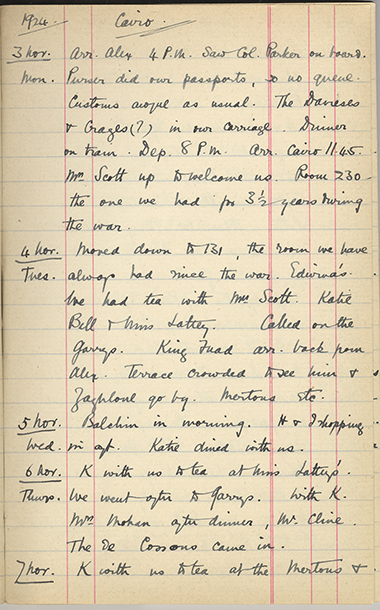 1924. Cairo.
3 Nov. Arr. Alex 4 P.M. Saw Col. Parker on board.
Mon. Purser did our passports, so no queue.
Customs awful as usual. The Davieses
& Crages(?) in our carriage. Dinner
on train. Dep. 8 P.M. Arr. Cairo 11.45.
Mrs Scott up to welcome us. Room 230
the one we had for 3½ years during
the war.
4 Nov. Moved down to 131, the room we have
Tues. always had since the war. Edwina's.
We had tea with Mrs Scott. Katie
Bell & Miss Lattey. Called on the
Garrys. King Fuad arr. back from
Alex. Terrace crowded to see him &
Zaghloul go by. Mertons etc.
5 Nov. Balchin in morning. H & I shopping
Wed. in aft. Katie dined with us.
6 Nov. K with us to tea at Miss Lattey's.
Thurs. We went after to Garrys. With K.
Mrs Mohan after dinner, Mr. Cline.
The de Cossons came in.
7 Nov. K with us to tea at the Mertons &